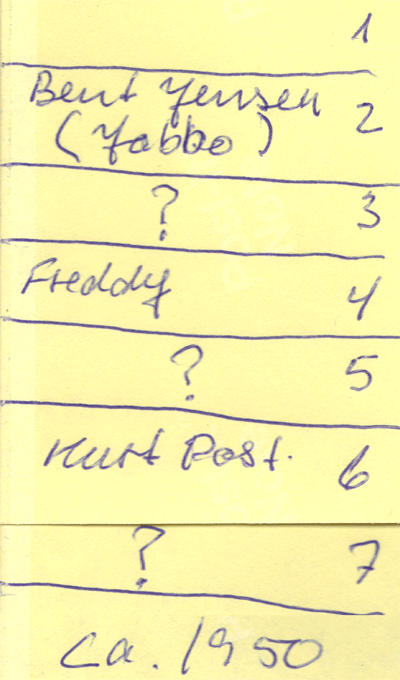 1
Bent Jensen 2
(Jabbo)
? 3
Freddy 4
? 5
Kurt Post. 6
? 7
ca. 1950